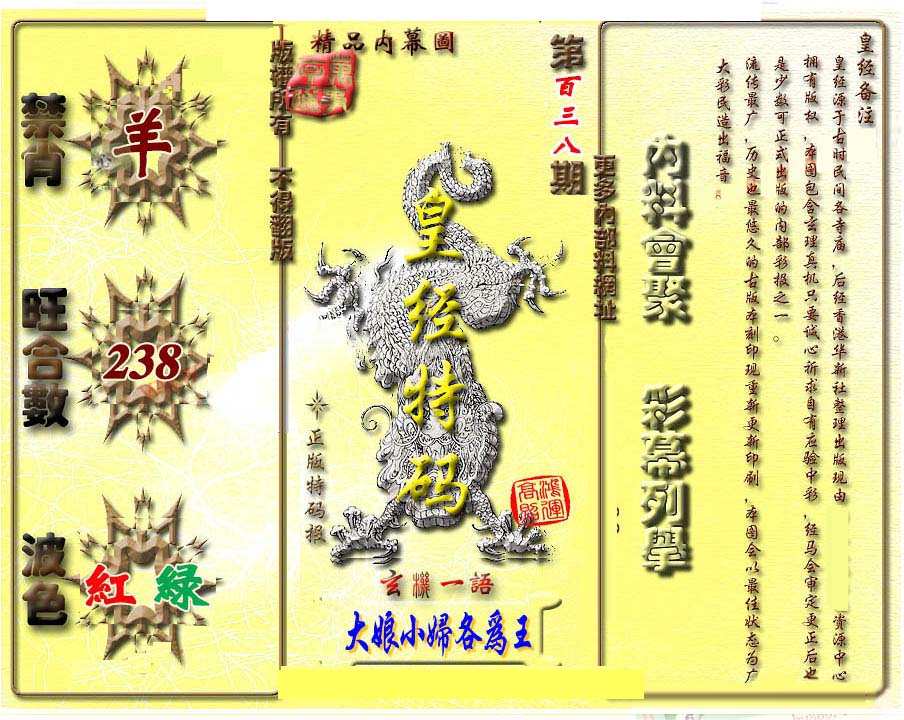 精品内幕圖
版權所有 不得翻版
第百三八期
更多內部料網址
禁肖
羊
旺合數
238
波色
紅 綠
皇经特码
正版特码报
鴻運高照
玄機一語
大娘小婦各爲王
內料會聚
彩幕列學
皇经备注
皇经源于古时民间各寺庙,后经香港华新社整理出版现由 资源中心
拥有版权,本图包含玄理真机只要诚心祈求自有应验中彩,经马会审定更正后也
是少数可正式出版的内部彩报之一。
流传最广,历史也最悠久的古版本刻印现重新更新印刷,本图会以最佳状态为广
大彩民造出福音